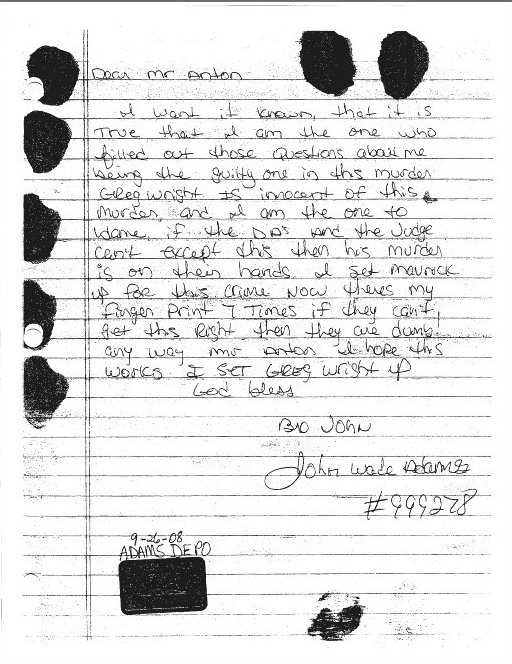 Dear mr Anton
I want it known, that it is
True that I am the one who
filled out those questions about me
being the guilty one in this murder
Greg wright IS innocent of this
murder, and I am the one to
blame, if the DA's and the Judge
can't except this then his murder
is on their hands. I set maverick
up for this crime Now theres my
finger print 7 Times if they can't
get this Right then they are dumb!
any way mr Anton I hope this
works. I SET GREG wright up
God bless
Bro JOHN
John wade Adams
#999278
9-26-08
ADAMS DEPO